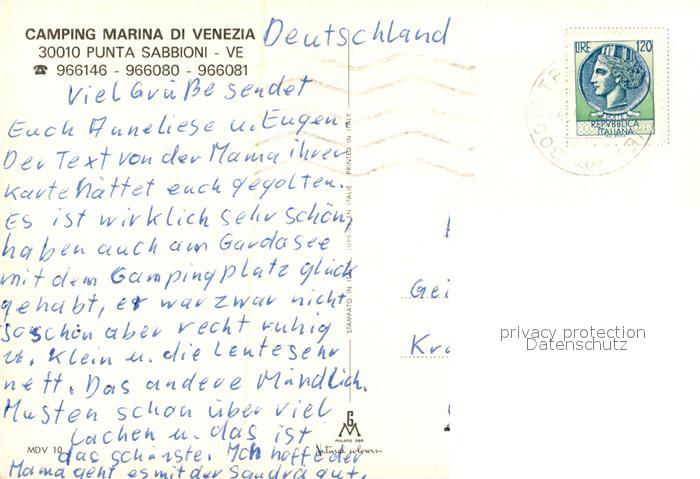 CAMPING MARINA DI VENEZIA
30010 PUNTA SABBIONI - VE
☎ 966146 - 966080 - 966081
Deutschland
LIRE 120
REPVBBLICA
ITALIANA
viel Grüße sendet
Euch Anneliese u. Eugen.
Der Text von der Mama ihrer
Karte hättet euch gegolten.
Es ist wirklich sehr schön,
haben auch am Gardasee
mit dem Gampingplatz glück
gehabt, er war zwar nicht
so schön aber recht ruhig
u. klein u. die Leute sehr
nett. Das andere Mündlich.
Musten schon über viel
lachen u. das ist
das schönste. Ich hoffe der
Mama geht es mit der Sandra gut.
STAMPATO IN ITALIA PRINTED IN ITALY
Gei
Kr
privacy protection
Datenschutz
MDV 10
GM
Natural colours